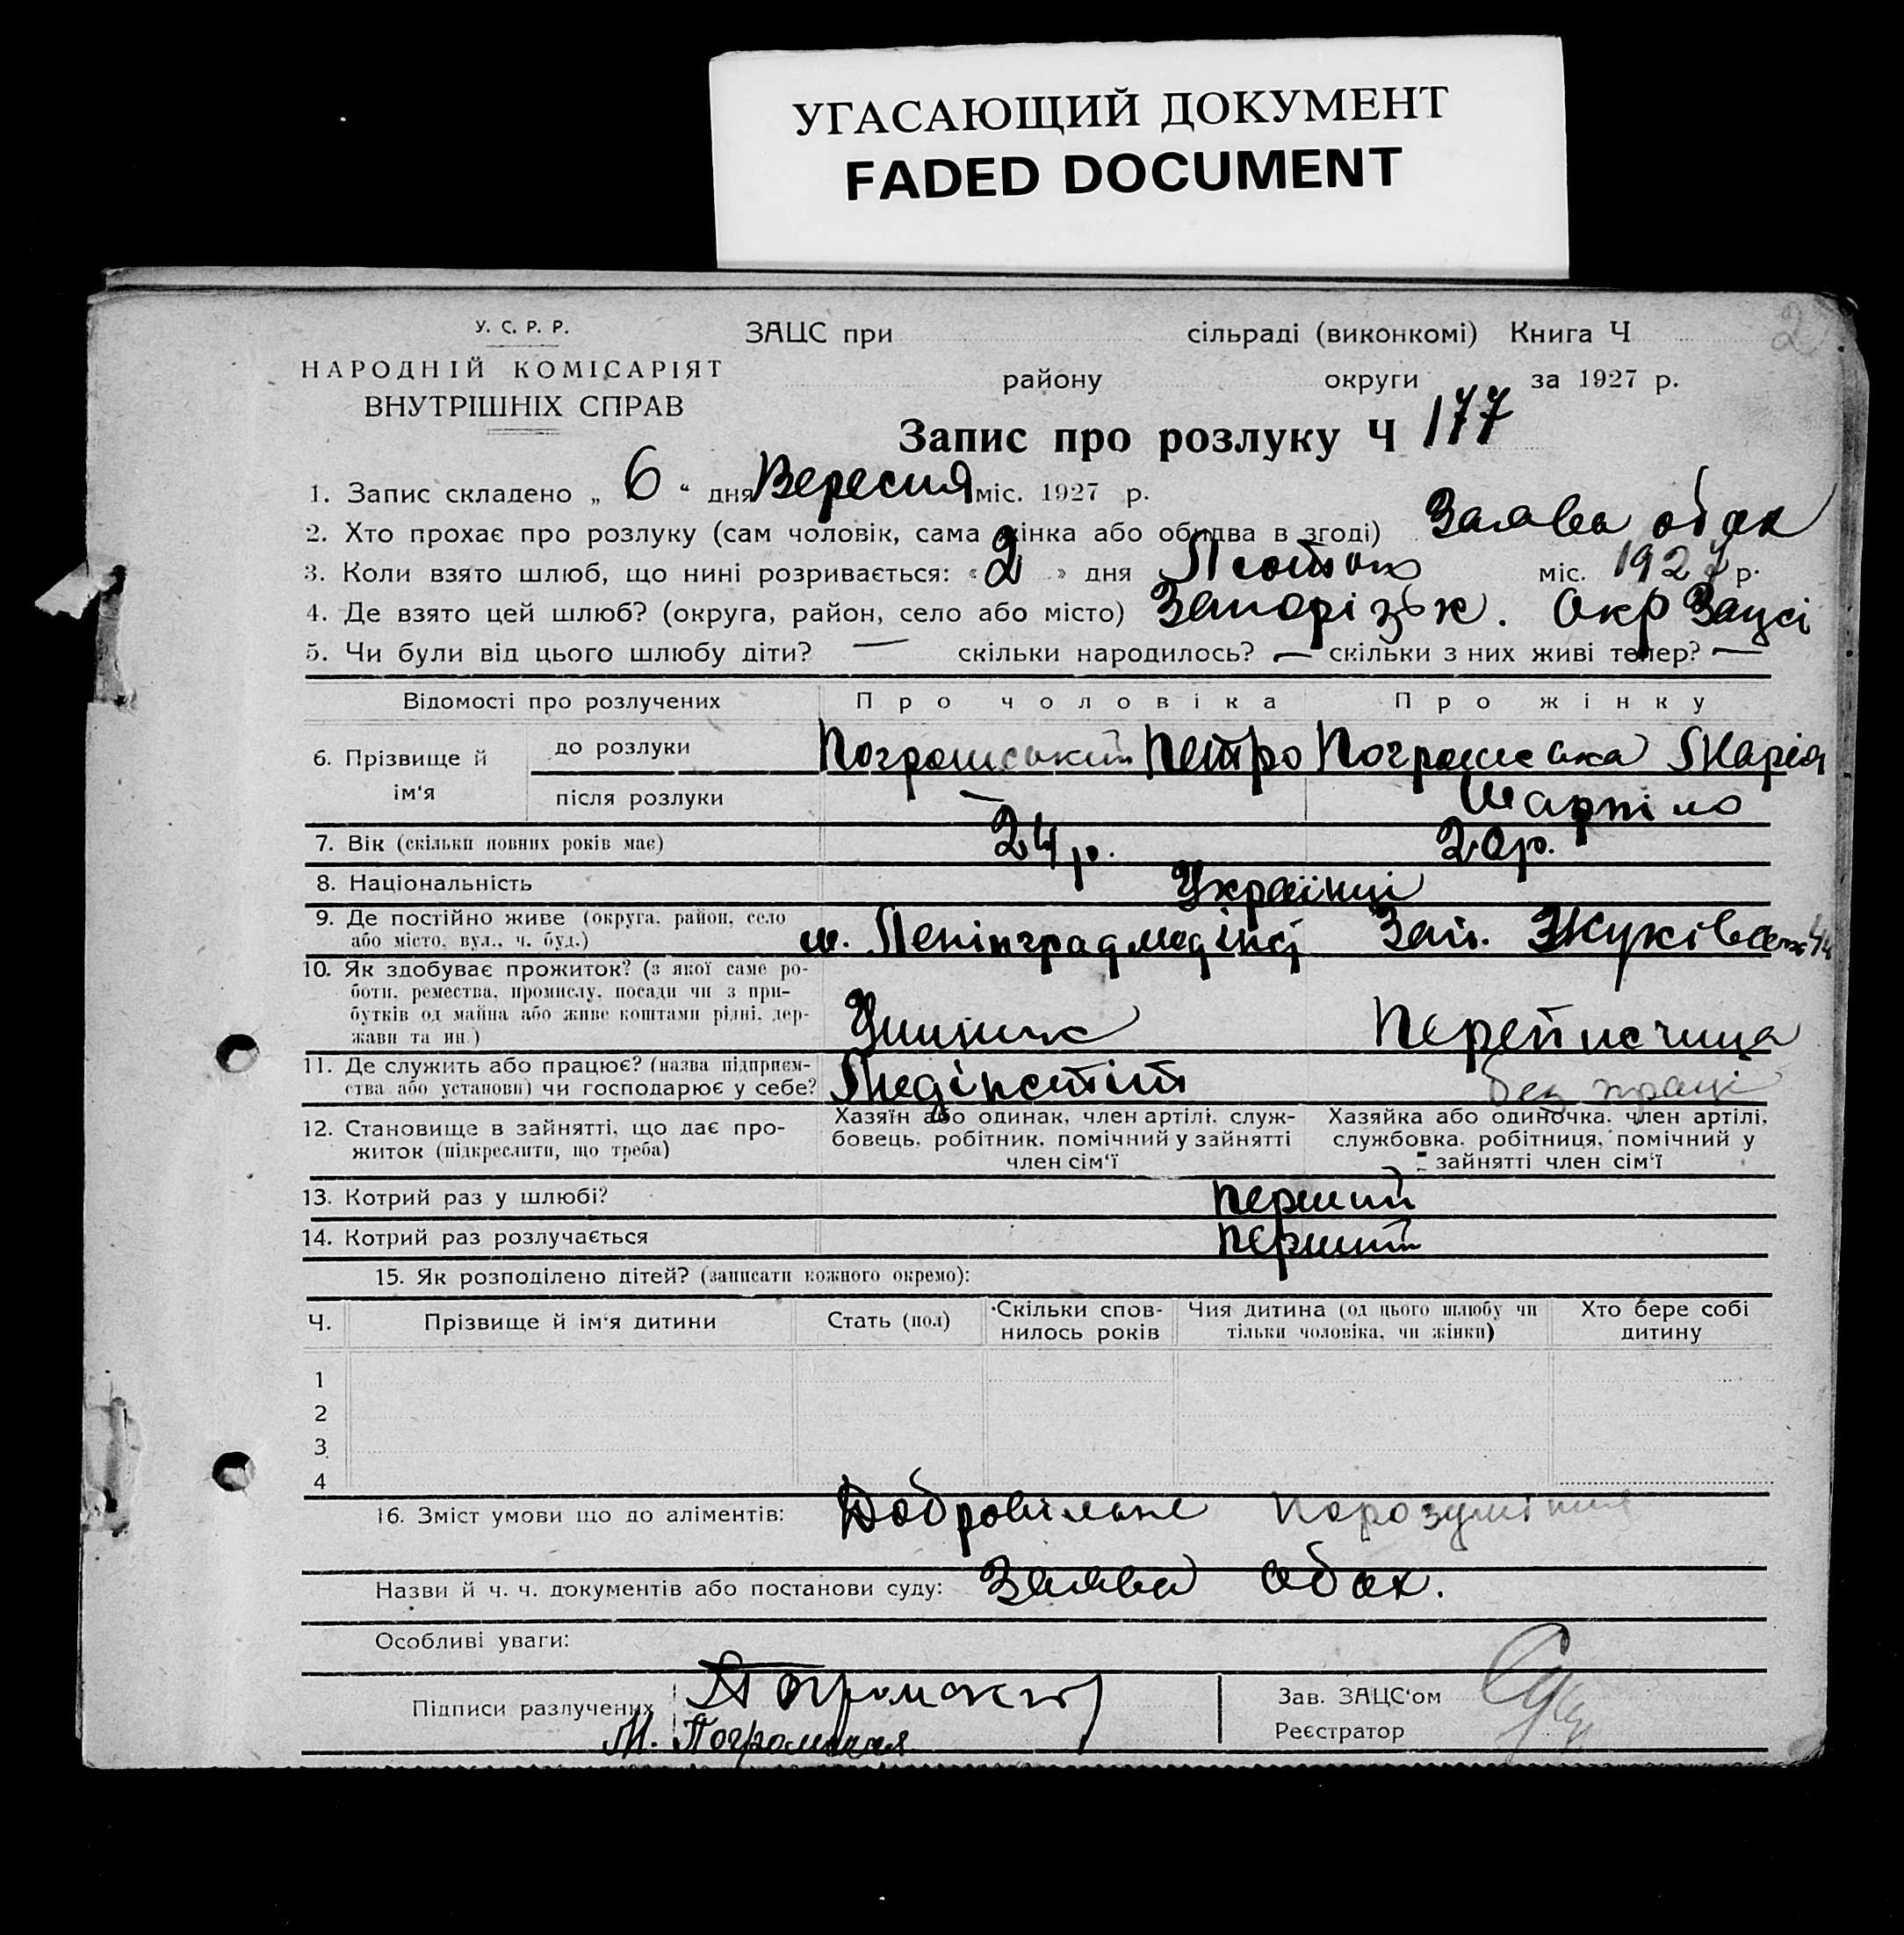 УГАСАЮЩИЙ ДОКУМЕНТ
FADED DOCUMENT
2
У. С. Р. Р.
НАРОДНІЙ КОМІСАРІЯТ
ВНУТРІШНІХ СПРАВ
ЗАЦС при сільраді (виконкомі) Книга Ч
району округи за 1927 р.
Запис про розлуку Ч 177
1. Запис складено „ 6 “ дня Вересня міс. 1927 р.
2. Хто прохає про розлуку (сам чоловік, сама жінка або обидва в згоді) Заява обох
3. Коли взято шлюб, що нині розривається: « 2 » дня Лютого міс. 1927 р.
4. Де взято цей шлюб? (округа, район, село або місто) Запорізьк. Окр Зацсі
5. Чи були від цього шлюбу діти? — скільки народилось? — скільки з них живі тепер? —
Відомості про розлучених Про чоловіка Про жінку
6. Прізвище й ім'я до розлуки Погромський Петро Погромська Марія
після розлуки — Шарпіло
7. Вік (скільки повних років має) 24 р. 20 р.
8. Національність Українці
9. Де постійно живе (округа, район, село
або місто, вул., ч. буд.) м. Ленінград медінс Зап. Жуківськ 44
10. Як здобуває прожиток? (з якої саме ро-
боти, ремества, промислу, посади чи з при-
бутків од майна або живе коштами рідні, дер-
жави та ин.) Учень Переписчица
11. Де служить або працює? (назва підприєм-
ства або установи) чи господарює у себе? Медінстіт без праці
12. Становище в зайнятті, що дає про-
житок (підкреслити, що треба)
Хазяїн або одинак, член артілі, служ-
бовець, робітник, помічний у зайнятті
член сім'ї
Хазяйка або одиночка, член артілі,
службовка, робітниця, помічний у
зайнятті член сім'ї
13. Котрий раз у шлюбі? перший
14. Котрий раз розлучається перший
15. Як розподілено дітей? (записати кожного окремо):
Ч. Прізвище й ім'я дитини Стать (пол) Скільки спов-нилось років Чия дитина (од цього шлюбу чи тільки чоловіка, чи жінки) Хто бере собі дитину
1
2
3
4
16. Зміст умови що до аліментів: Добровільне порозуміння
Назви й ч. ч. документів або постанови суду: Заява обох.
Особливі уваги:
Підписи разлучених Погромский
М. Погромская
Зав. ЗАЦС'ом
Реєстратор